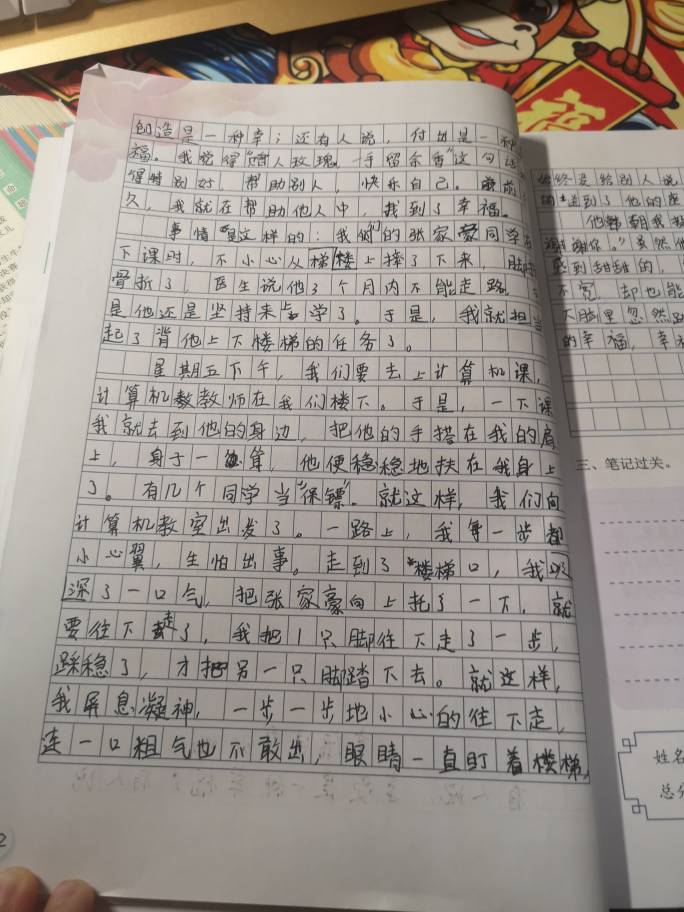 创造是一种幸；还有人说，付出是一种
福。我觉得"赠人玫瑰，手留余香"这句话
得特别好，帮助别人，快乐自己。前
久，我就在帮助他人中，找到了幸福。
事情是这样的：我们的张家豪同学在
下课时，不小心从梯楼上摔了下来，脚
骨折了，医生说他3个月内不能走路，
是他还是坚持来上学了。于是，我就担当
起了背他上下楼梯的任务了。
星期五下午，我们要去上计算机课，
计算机教教师在我们楼下。于是，一下课
我就去到他的身边，把他的手搭在我的肩
上，身子一，他便稳稳地扶在我身上
了。有几个同学当"保镖"。就这样，我们向
计算机教室出发了。一路上，我每一步都
小心翼，生怕出事。走到了楼梯口，我吸
深了一口气，把张家豪向上托了一下，就
要往下走了，我把1只脚往下走了一步，
踩稳了，才把另一只脚踏下去。就这样，
我屏息凝神，一步一步地小心的往下走，
连一口粗气也不敢出，眼睛一直盯着楼梯，
始终没给别人说
的送到了他的座
他朝我
谢谢你。"虽然他
感到甜甜的，
不宽，却也能
大脑里忽然
的幸福，幸
三、笔记过关。
姓名
总分
2